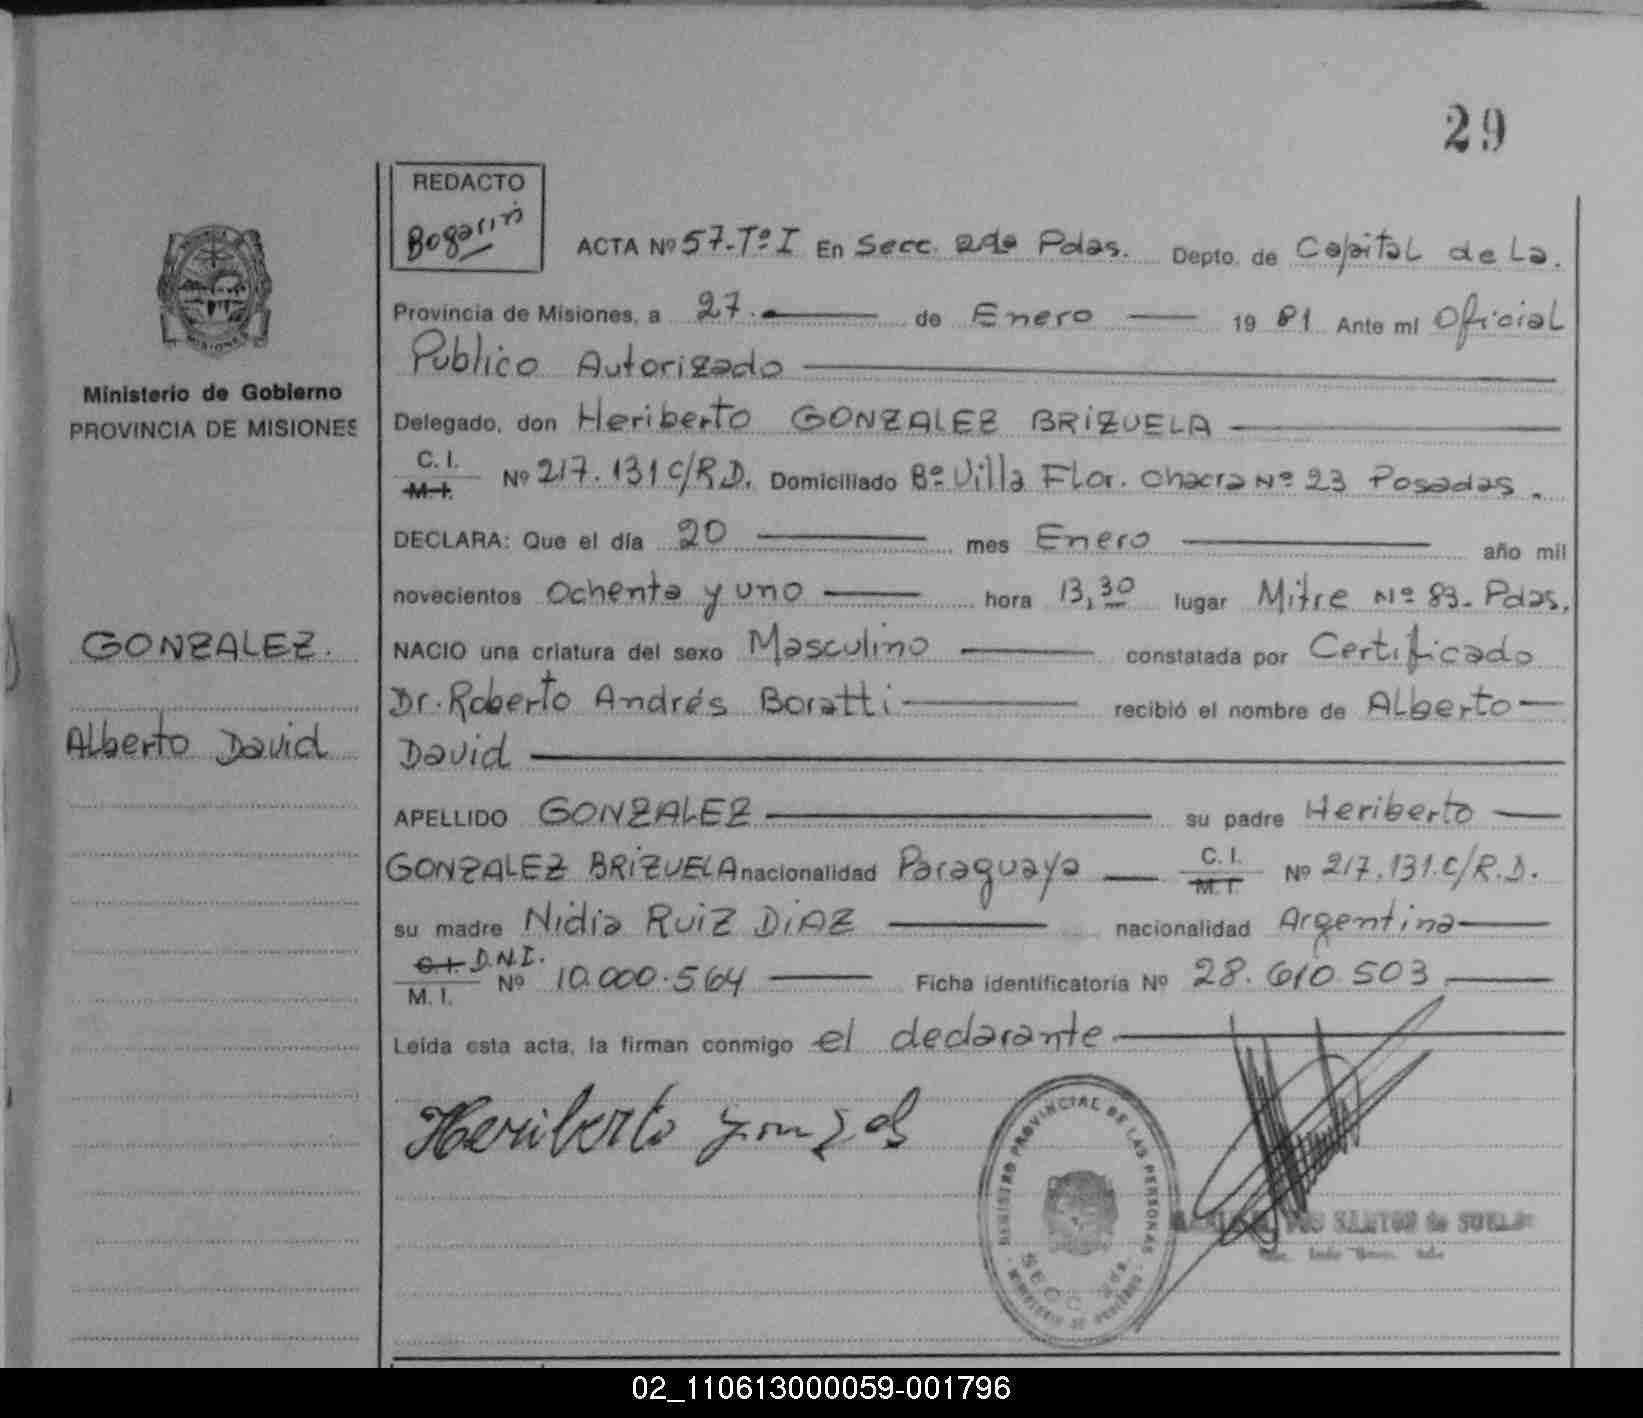 29
REDACTO
Bogarin
ACTA Nº 57-Tº I En Secc. 2da Pdas. Depto. de Capital de La.
Provincia de Misiones, a 27. de Enero 19 81 Ante mí Oficial
Publico Autorizado
Ministerio de Gobierno
PROVINCIA DE MISIONES
Delegado, don Heriberto GONZALEZ BRIZUELA
C. I.
M. I. Nº 217.131 C/R.D. Domiciliado Bº Villa Flor. Chacra Nº 23 Posadas.
DECLARA: Que el día 20 mes Enero año mil
novecientos Ochenta y uno hora 13,30 lugar Mitre Nº 83- Pdas.
GONZALEZ.
NACIO una criatura del sexo Masculino constatada por Certificado
Dr. Roberto Andrés Boratti recibió el nombre de Alberto
Alberto David
David
APELLIDO GONZALEZ su padre Heriberto
GONZALEZ BRIZUELA nacionalidad Paraguaya C. I. M. I. Nº 217.131.C/R.D.
su madre Nidia RUIZ DIAZ nacionalidad Argentina
C. I. D.N.I.
M. I. Nº 10.000.564 Ficha identificatoria Nº 28.610.503
Leída esta acta, la firman conmigo el declarante
Heriberto Gonzales
REGISTRO PROVINCIAL DE LAS PERSONAS
SECC 2da.
MINISTERIO DE GOBIERNO
SANTOS de
02_110613000059-001796